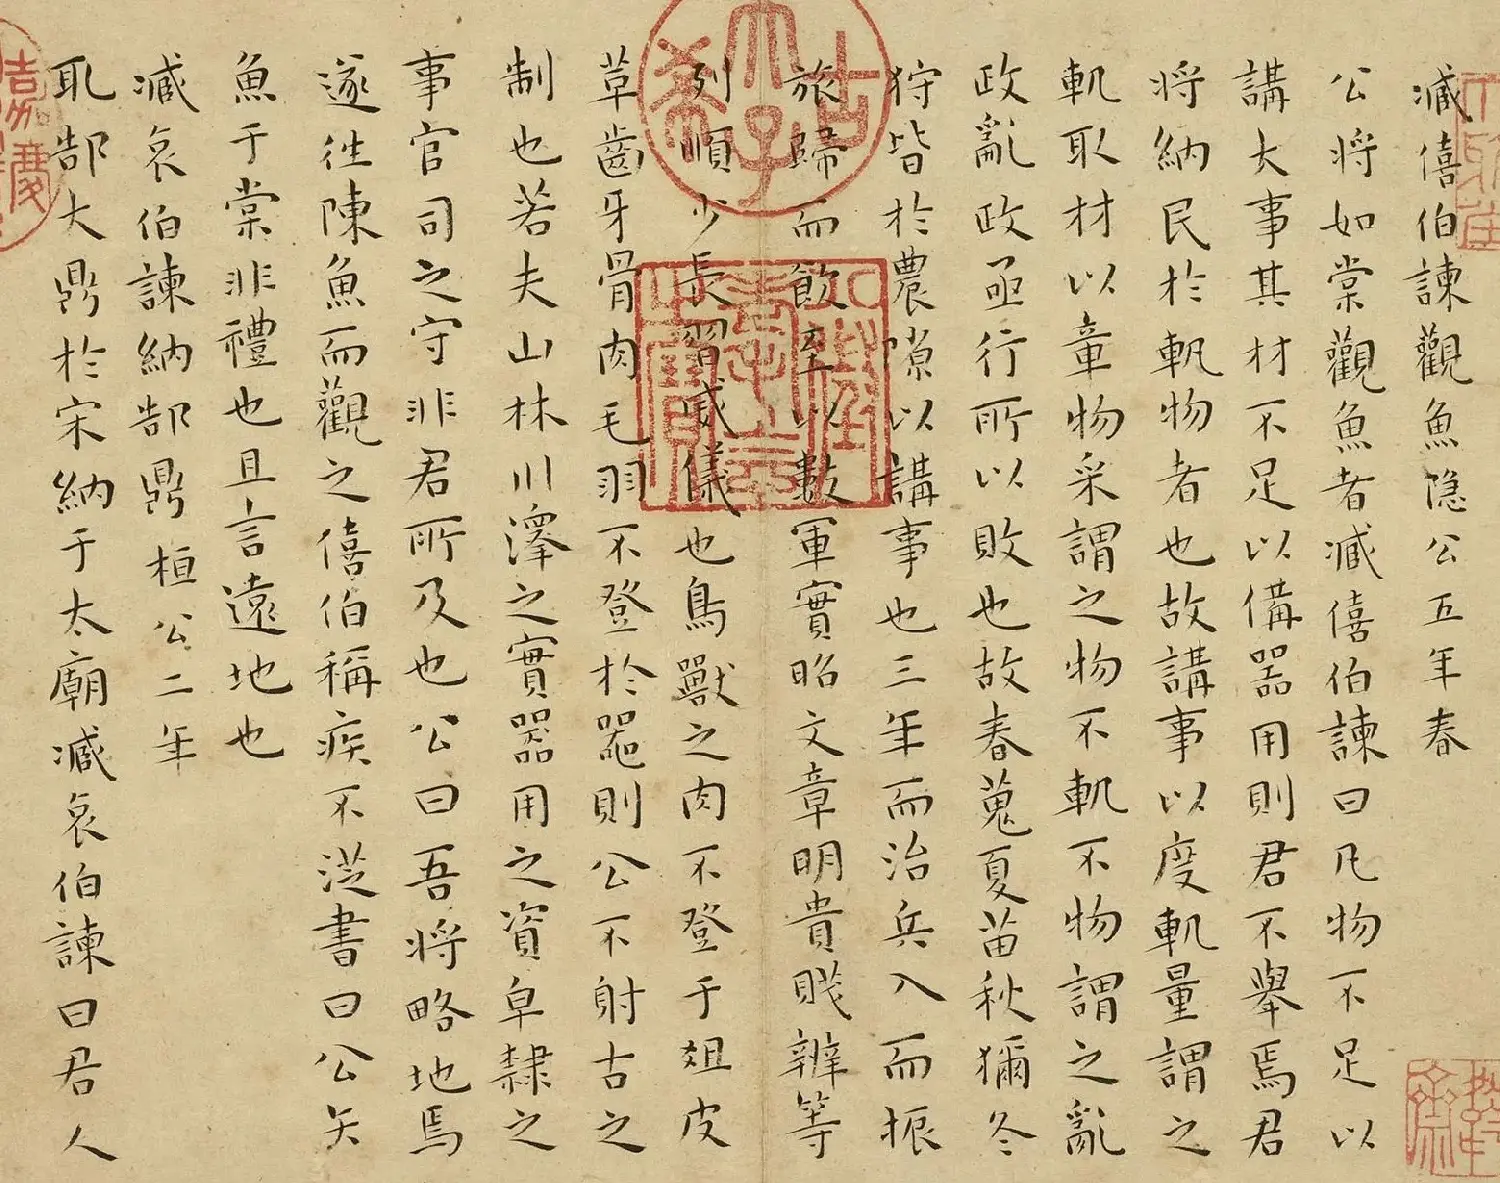 臧僖伯諫觀魚隱公五年春
公將如棠觀魚者臧僖伯諫曰凡物不足以
講大事其材不足以備器用則君不舉焉君
將納民於軌物者也故講事以度軌量謂之
軌取材以章物采謂之物不軌不物謂之亂
政亂政亟行所以敗也故春蒐夏苗秋獮冬
狩皆於農隙以講事也三年而治兵入而振
旅歸而飲至以數軍實昭文章明貴賤辨等
列順少長習威儀也鳥獸之肉不登于俎皮
革齒牙骨肉毛羽不登於器則公不射古之
制也若夫山林川澤之實器用之資皁隸之
事官司之守非君所及也公曰吾將略地焉
遂往陳魚而觀之僖伯稱疾不從書曰公矢
魚于棠非禮也且言遠地也
臧哀伯諫納郜鼎 桓公二年
取郜大鼎於宋納于太廟臧哀伯諫曰君人
古稀天子
壽
嘉慶